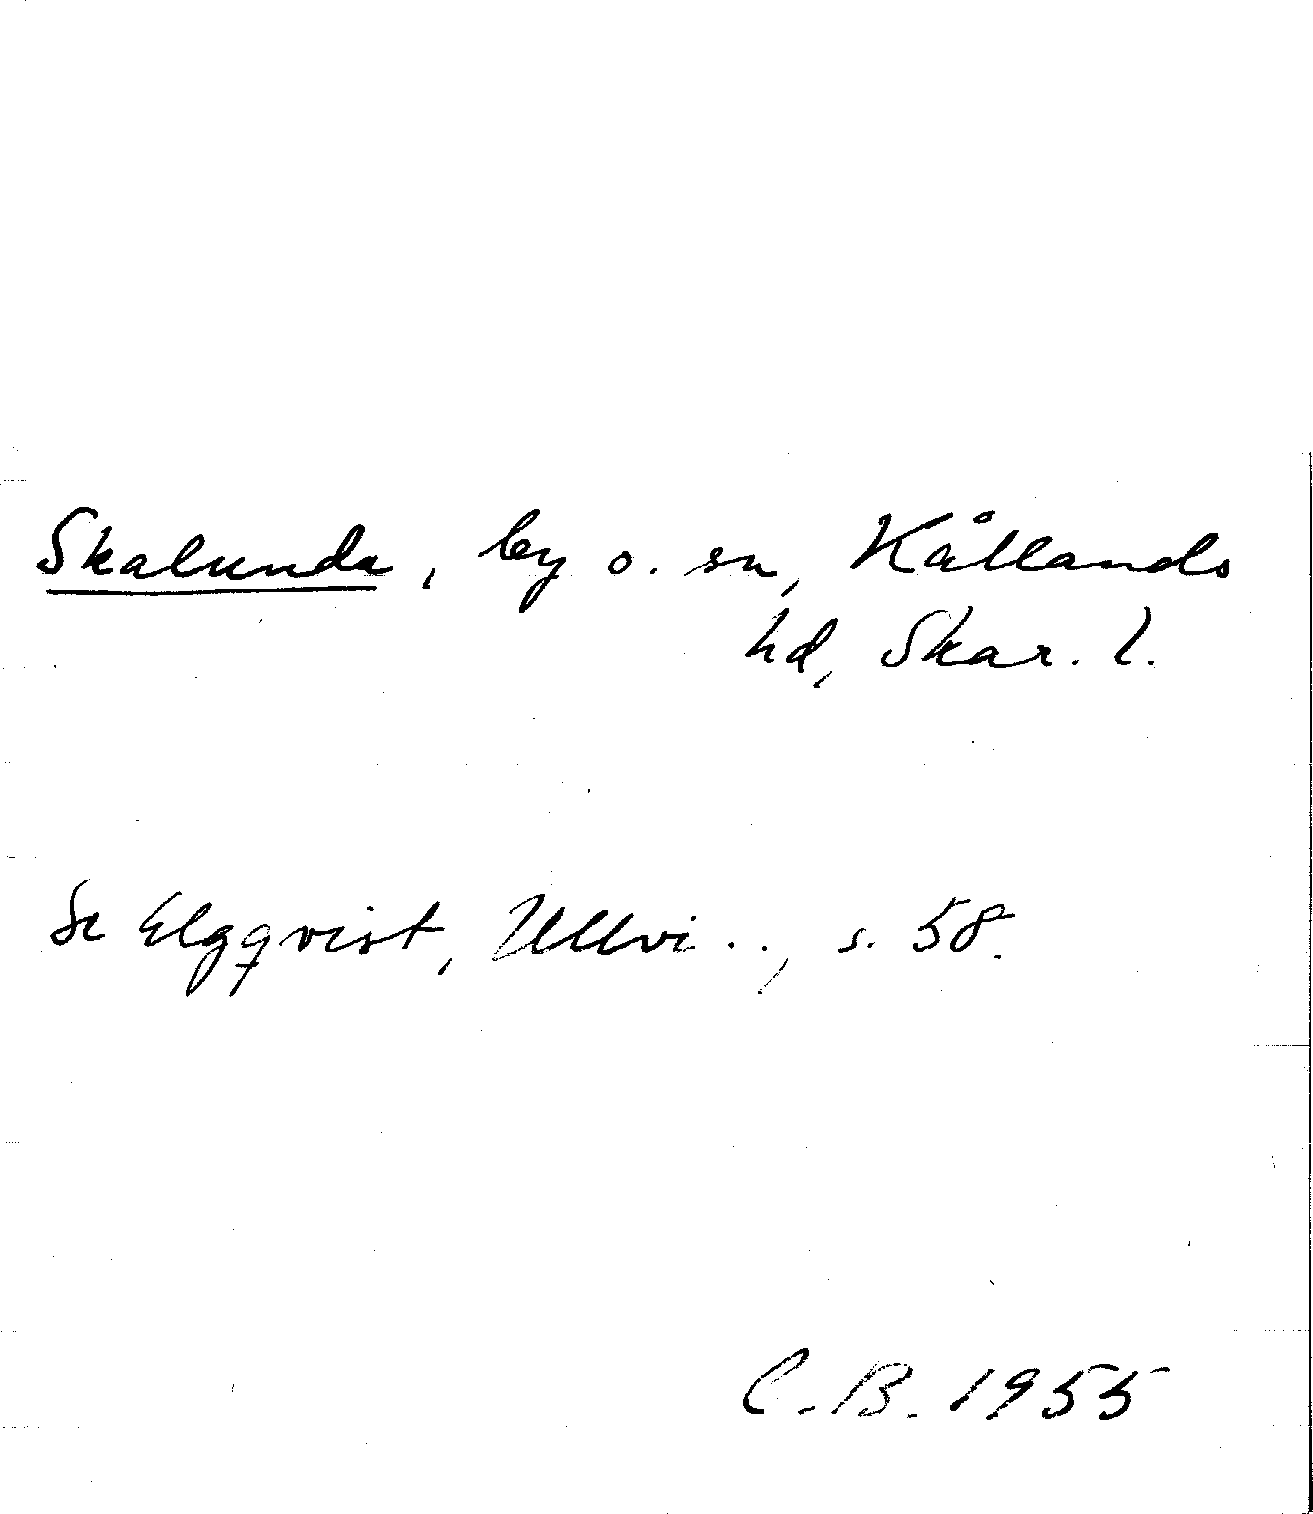 Skalunda, by o. sn, Kållands
hd, Skar. l.
Se Elgqvist, Ullvi . ., s. 58.
C. B. 1955